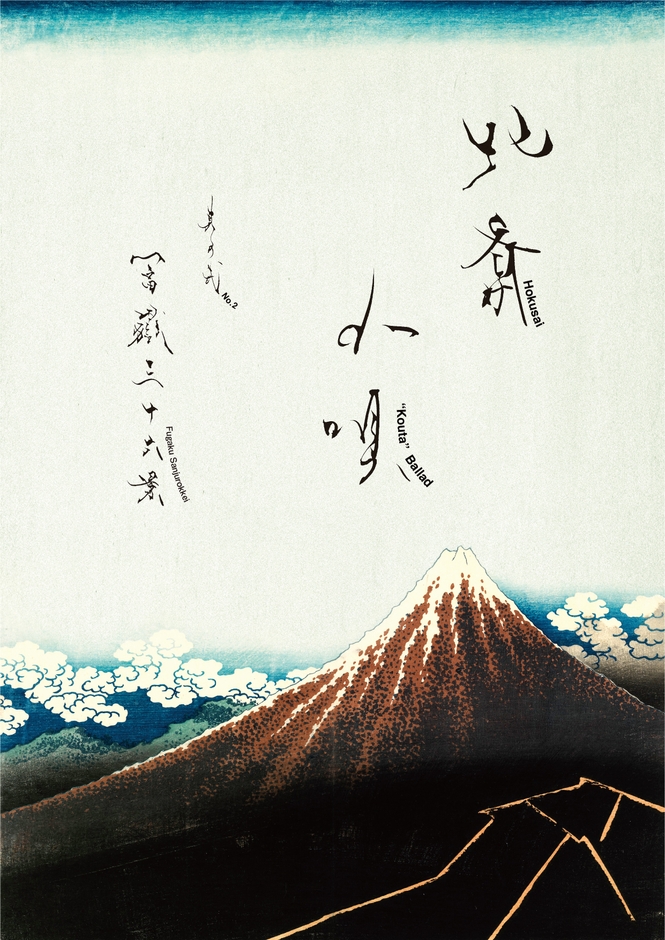 北斎
Hokusai
小唄
“Kouta” Ballad
其の弐
No.2
冨嶽三十六景
Fugaku Sanjurokkei